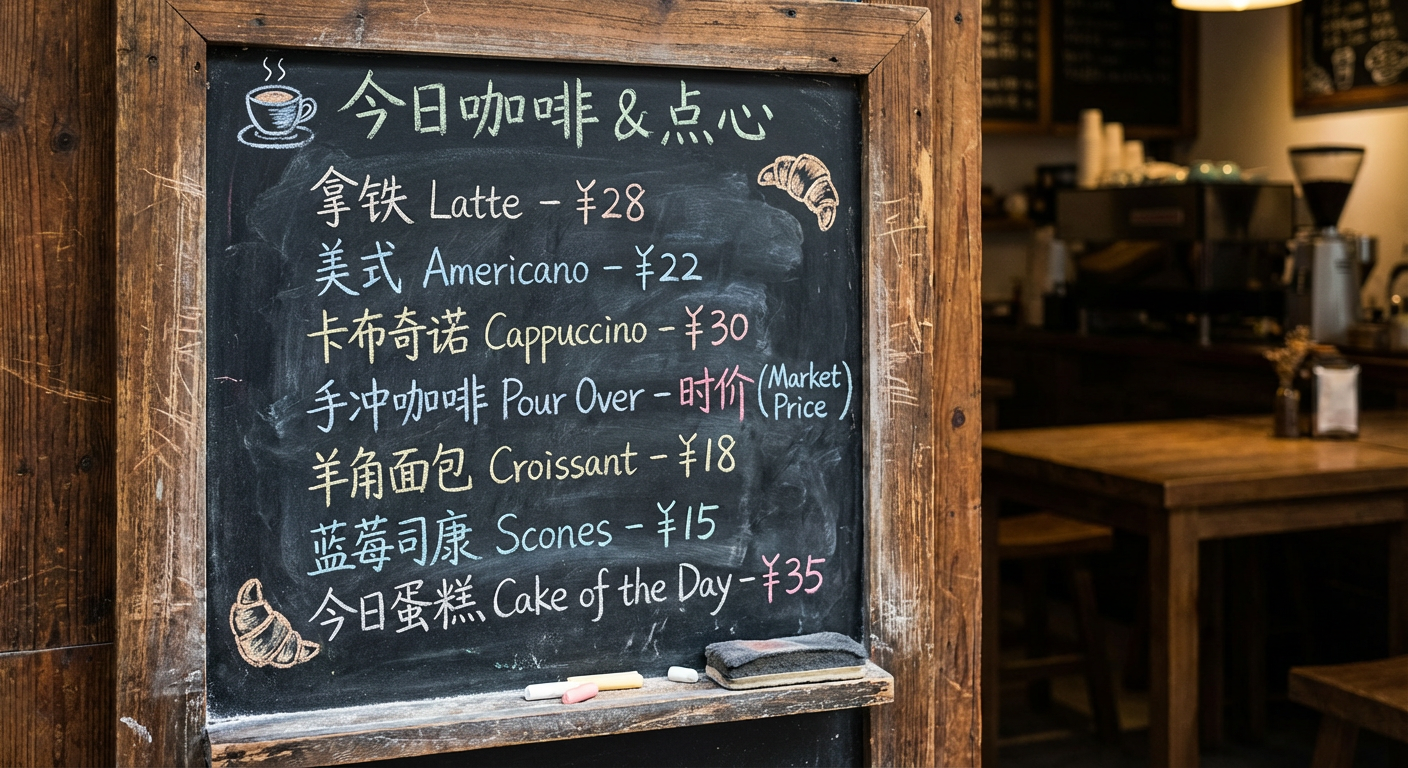 今日咖啡 & 点心
拿铁 Latte – ¥28
美式 Americano – ¥22
卡布奇诺 Cappuccino – ¥30
手冲咖啡 Pour Over – 时价 (Market Price)
羊角面包 Croissant – ¥18
蓝莓司康 Scones – ¥15
今日蛋糕 Cake of the Day – ¥35